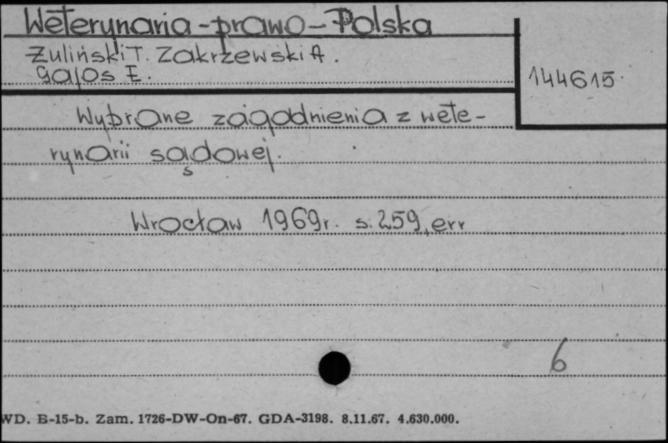 Weterynaria - prawo - Polska
Żuliński T. Zakrzewski A.
Gajos E.
144615
Wybrane zagadnienia z wete-
rynarii sądowej.
Wrocław 1969r. s. 259, err
6
WD. B-15-b. Zam. 1726-DW-On-67. GDA-3198. 8.11.67. 4.630.000.